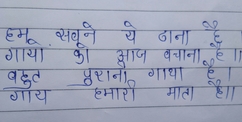 हम सबने ये ठाना है
गायो को आज बचाना है।
बहुत पुरानी गाथा है।
गाय हमारी माता है॥